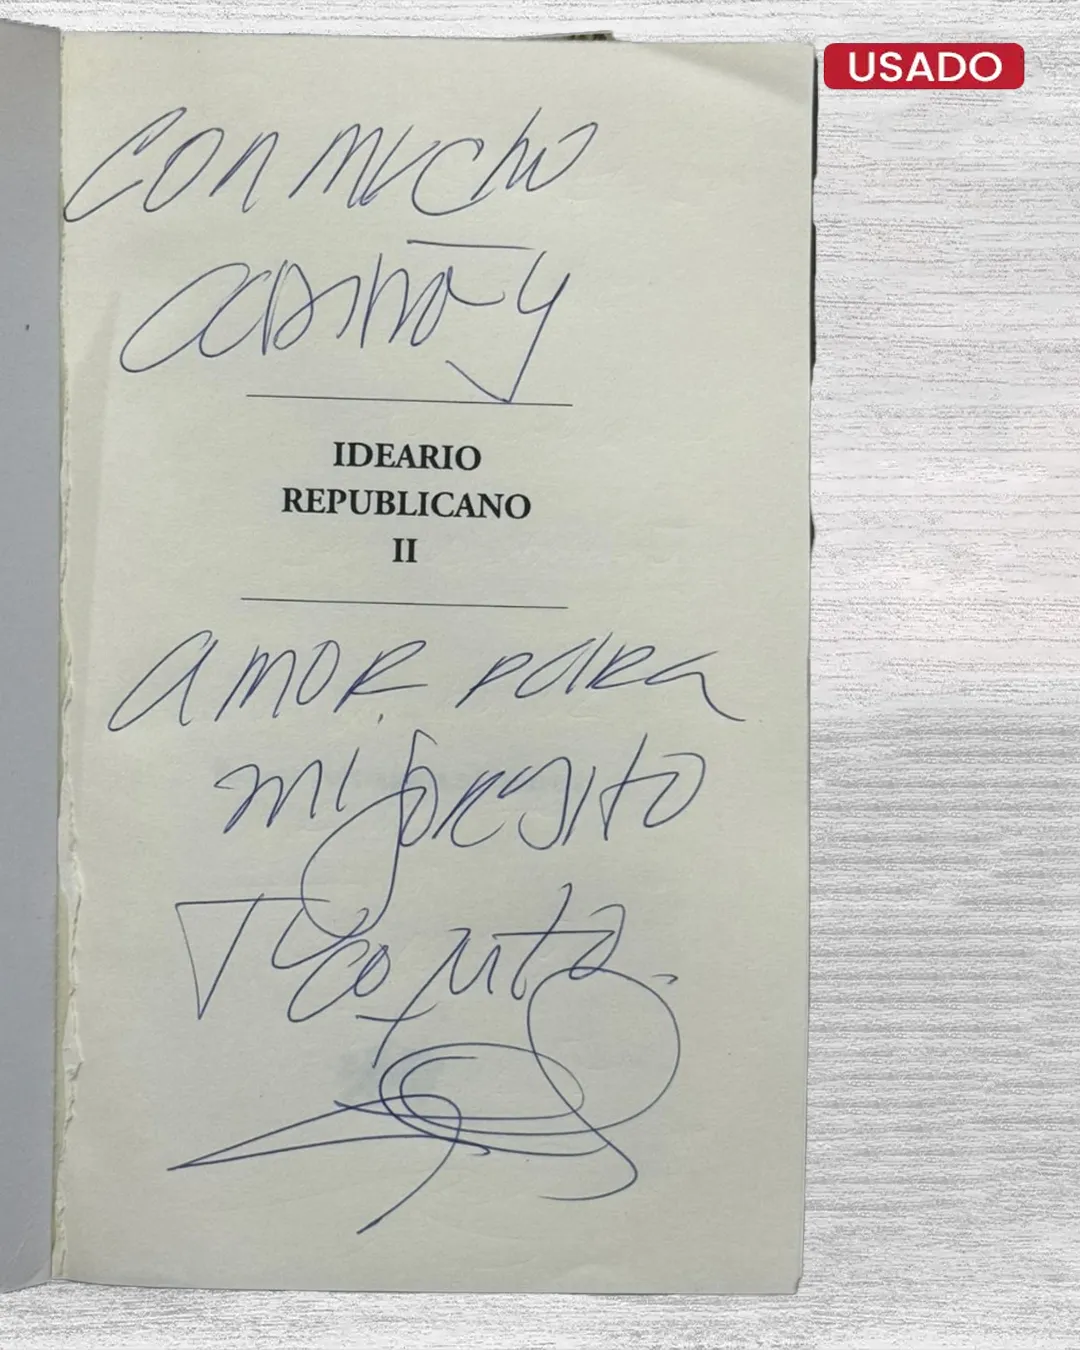 USADO
Con mucho
cariño y
IDEARIO
REPUBLICANO
II
amor para
mi Jorgito